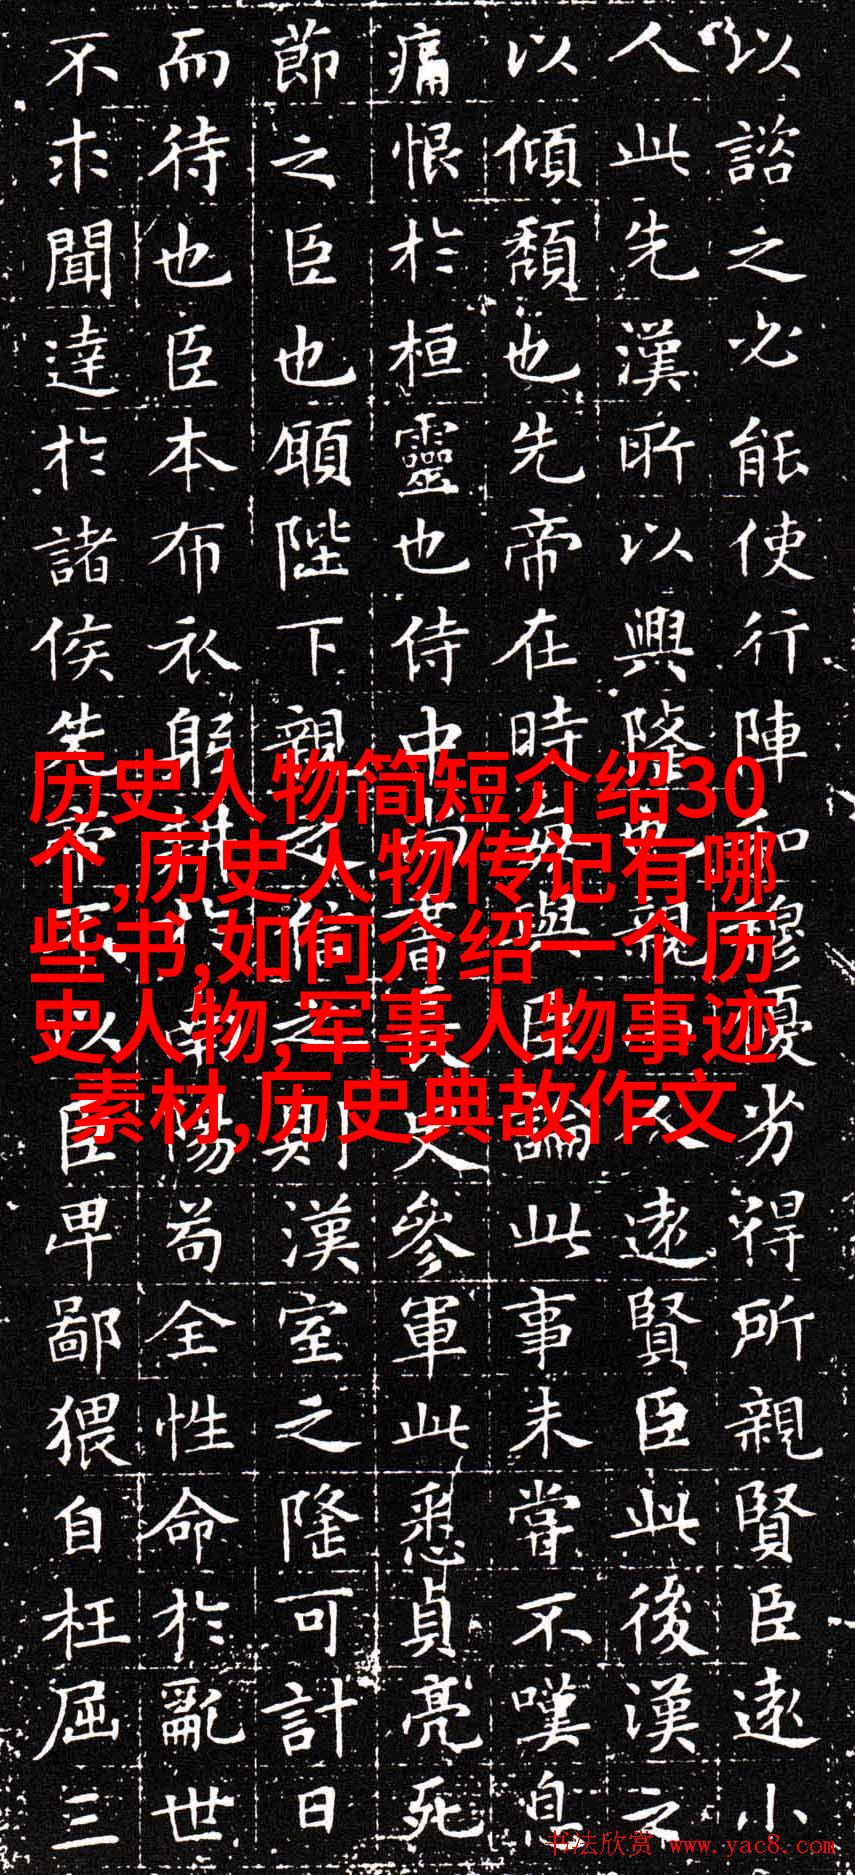 以諮之必能使行陣和穆優劣得所親賢臣遠小
人此先漢所以興隆也親小人遠賢臣此後漢之
以傾頹也先帝在時每與臣論此事未嘗不嘆息
痛恨於桓靈也侍中尚書長史參軍此悉貞亮死
節之臣也願陛下親之信之則漢室之隆可計日
而待也臣本布衣躬耕於南陽苟全性命於亂世
不求聞達於諸侯先帝不以臣卑鄙猥自枉屈三
历史人物简短介绍30
个,历史人物传记有哪
些书,如何介绍一个历
史人物,军事人物事迹
素材,历史典故作文
书法欣赏 www.yac8.com